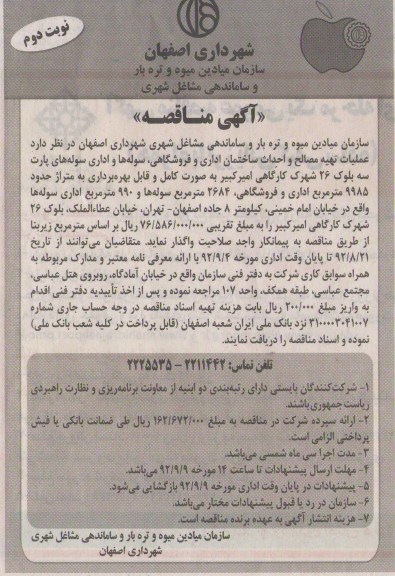 نوبت دوم
شهرداری اصفهان
سازمان میادین میوه و تره بار
و ساماندهی مشاغل شهری
«آگهی مناقصه»
سازمان میادین میوه و تره بار و ساماندهی مشاغل شهری شهرداری اصفهان در نظر دارد
عملیات تهیه مصالح و احداث ساختمان اداری و فروشگاهی، سوله‌ها و اداری سوله‌های پارت
سه بلوک ۲۶ شهرک کارگاهی امیرکبیر به صورت کامل و قابل بهره‌برداری به متراژ حدود
۹۹۸۵ مترمربع اداری و فروشگاهی، ۲۶۸۴ مترمربع سوله‌ها و ۹۹۰ مترمربع اداری سوله‌ها
واقع در خیابان امام خمینی، کیلومتر ۸ جاده اصفهان- تهران، خیابان عطاءالملک، بلوک ۲۶
شهرک کارگاهی امیرکبیر را به مبلغ تقریبی ۷۶/۵۸۶/۰۰۰/۰۰۰ ریال بر اساس مترمربع زیربنا
از طریق مناقصه به پیمانکار واجد صلاحیت واگذار نماید. متقاضیان می‌توانند از تاریخ
۹۲/۸/۲۱ تا پایان وقت اداری مورخه ۹۲/۹/۴ با ارائه معرفی نامه معتبر و مدارک مربوطه به
همراه سوابق کاری شرکت به دفتر فنی سازمان واقع در خیابان آمادگاه، روبروی هتل عباسی،
مجتمع عباسی، طبقه همکف، واحد ۱۰۷ مراجعه نموده و پس از اخذ تأییدیه دفتر فنی اقدام
به واریز مبلغ ۲۰۰/۰۰۰ ریال بابت هزینه تهیه اسناد مناقصه در وجه حساب جاری شماره
۳۱۰۰۰۰۳۰۴۱۰۰۷ نزد بانک ملی ایران شعبه اصفهان (قابل پرداخت در کلیه شعب بانک ملی)
نموده و اسناد مناقصه را دریافت نمایند.
تلفن تماس: ۲۲۱۱۴۴۲ - ۲۲۲۵۵۳۵
۱- شرکت‌کنندگان بایستی دارای رتبه‌بندی دو ابنیه از معاونت برنامه‌ریزی و نظارت راهبردی
ریاست جمهوری باشند.
۲- ارائه سپرده شرکت در مناقصه به مبلغ ۱۶۲/۶۷۲/۰۰۰ ریال طی ضمانت بانکی یا فیش
پرداختی الزامی است.
۳- مدت اجرا سی ماه شمسی می‌باشد.
۴- مهلت ارسال پیشنهادات تا ساعت ۱۴ مورخه ۹۲/۹/۹ می‌باشد.
۵- پیشنهادات در پایان وقت اداری مورخه ۹۲/۹/۹ بازگشایی می‌شود.
۶- سازمان در رد یا قبول پیشنهادات مختار می‌باشد.
۷- هزینه انتشار آگهی به عهده برنده مناقصه است.
سازمان میادین میوه و تره بار و ساماندهی مشاغل شهری
شهرداری اصفهان